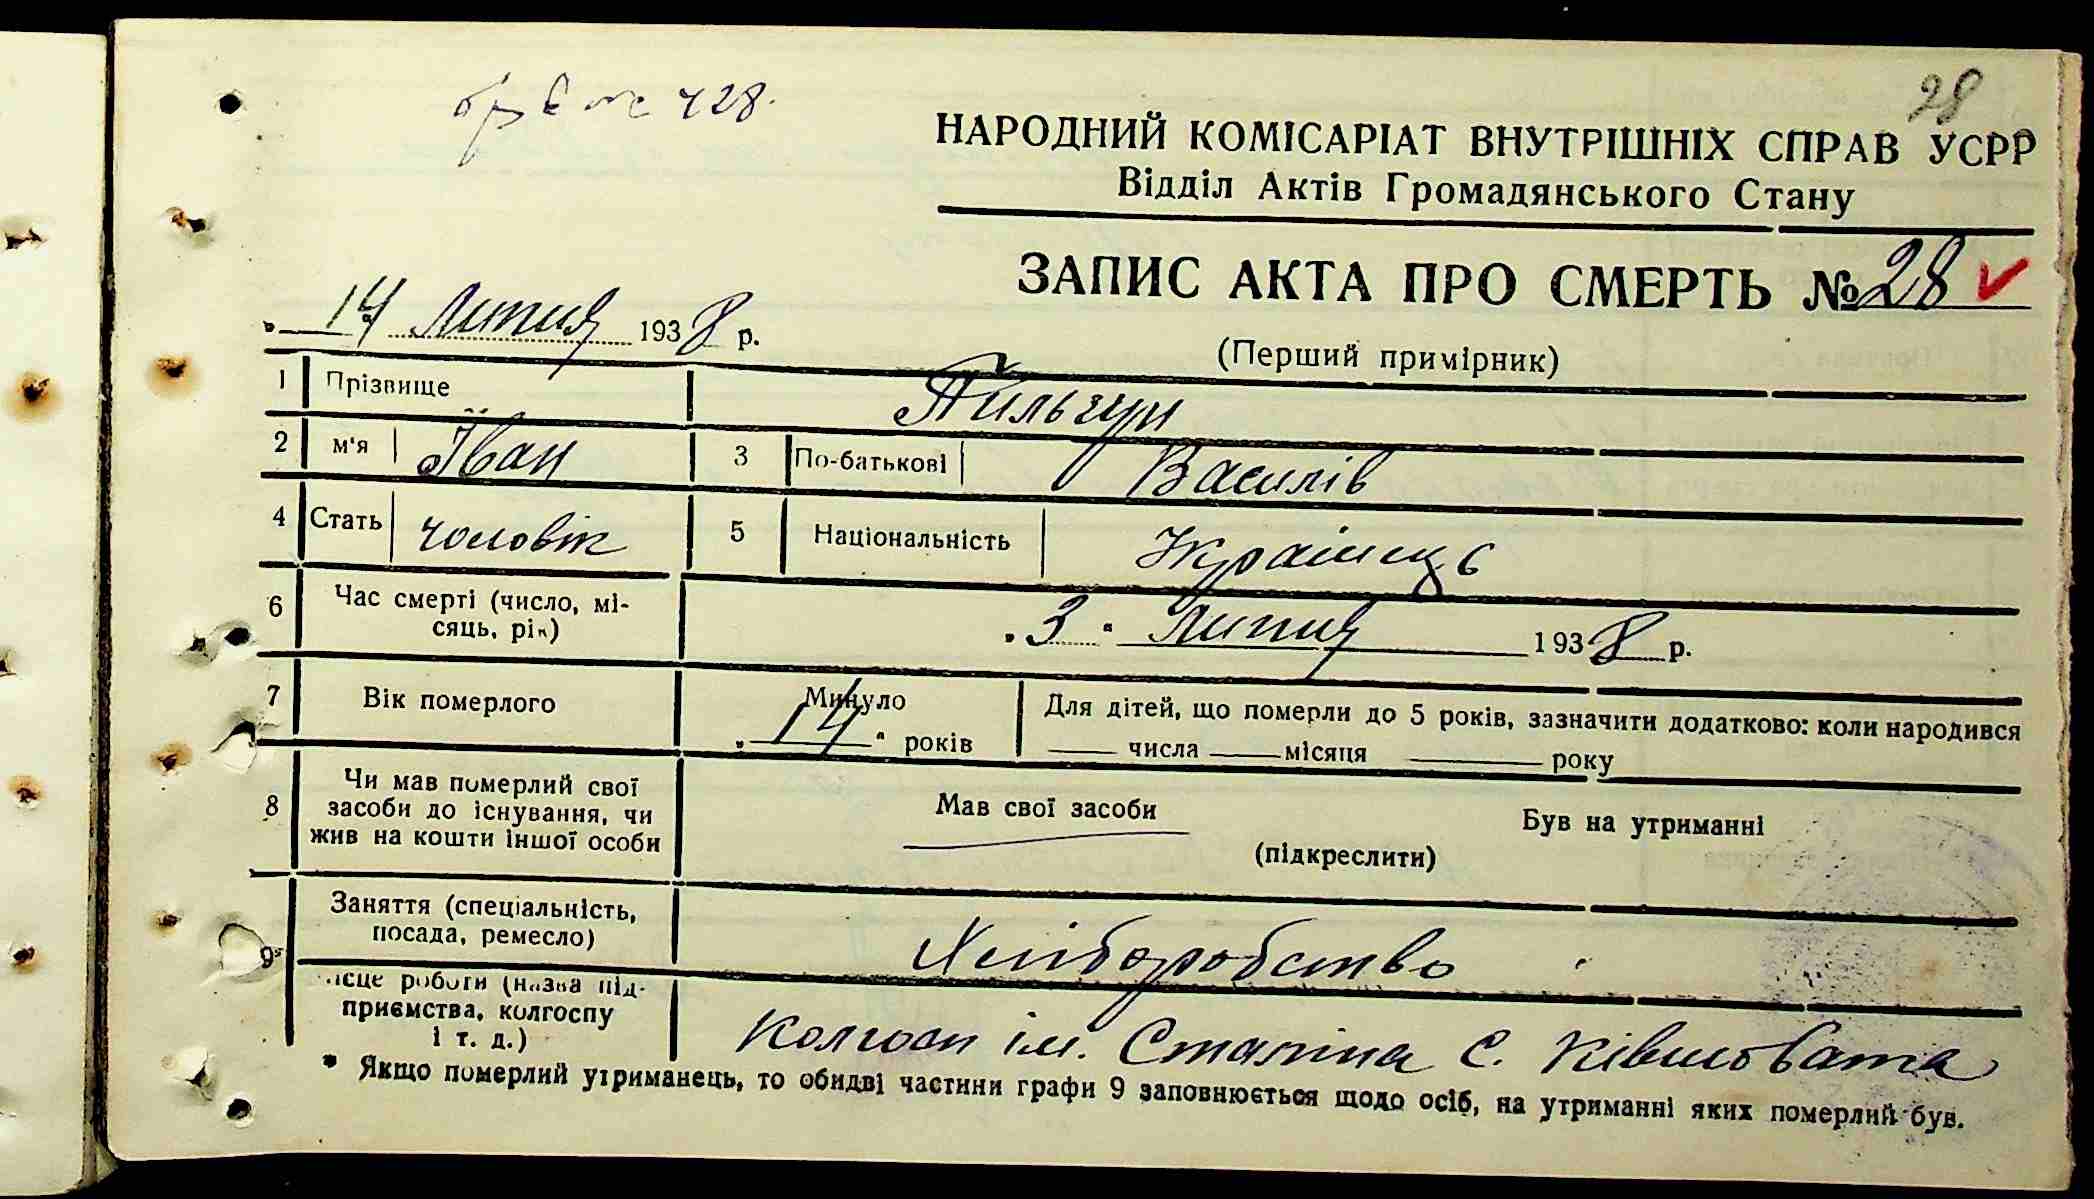 28
428.
НАРОДНИЙ КОМІСАРІАТ ВНУТРІШНІХ СПРАВ УСРР
Відділ Актів Громадянського Стану
ЗАПИС АКТА ПРО СМЕРТЬ № 28
„ 14 " Липня 1938 р.
(Перший примірник)
1 Прізвище Пильгун
2 м'я Іван 3 По-батькові Василів
4 Стать чоловік 5 Національність Украінець
6 Час смерті (число, мі-
сяць, рік) „ 3 " Липня 1938 р.
7 Вік померлого Минуло „ 14 " років
Для дітей, що померли до 5 років, зазначити додатково: коли народився
числа місяця року
8 Чи мав померлий свої
засоби до існування, чи
жив на кошти іншої особи
Мав свої засоби Був на утриманні
(підкреслити)
9* Заняття (спеціальність,
посада, ремесло) Хліборобство
ісце роботи (назва під-
приємства, колгоспу
і т. д.) Колгосп ім. Сталіна с. Ківшовата
* Якщо померлий утриманець, то обидві частини графи 9 заповнюється щодо осіб, на утриманні яких померлий був.